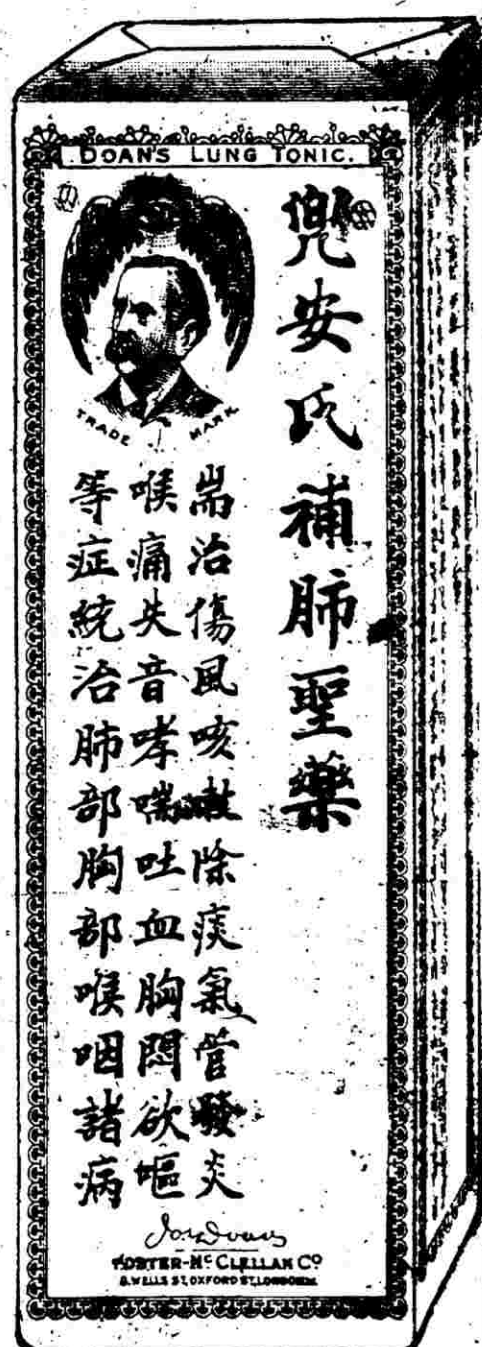 DOAN'S LUNG TONIC.
TRADE MARK.
兜安氏補肺聖藥
耑治傷風咳嗽除痰氣管發炎
喉痛失音哮喘吐血胸悶欲嘔
等症統治肺部胸部喉咽諸病
FOSTER-McCLELLAN Co
8, WELLS ST, OXFORD ST, LONDON